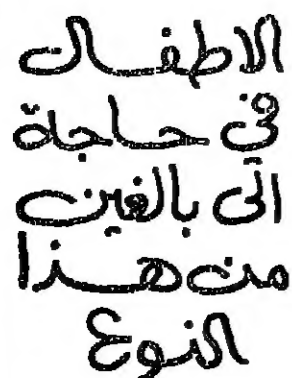 الاطفال
في حاجة
الى بالغين
من هذا
النوع